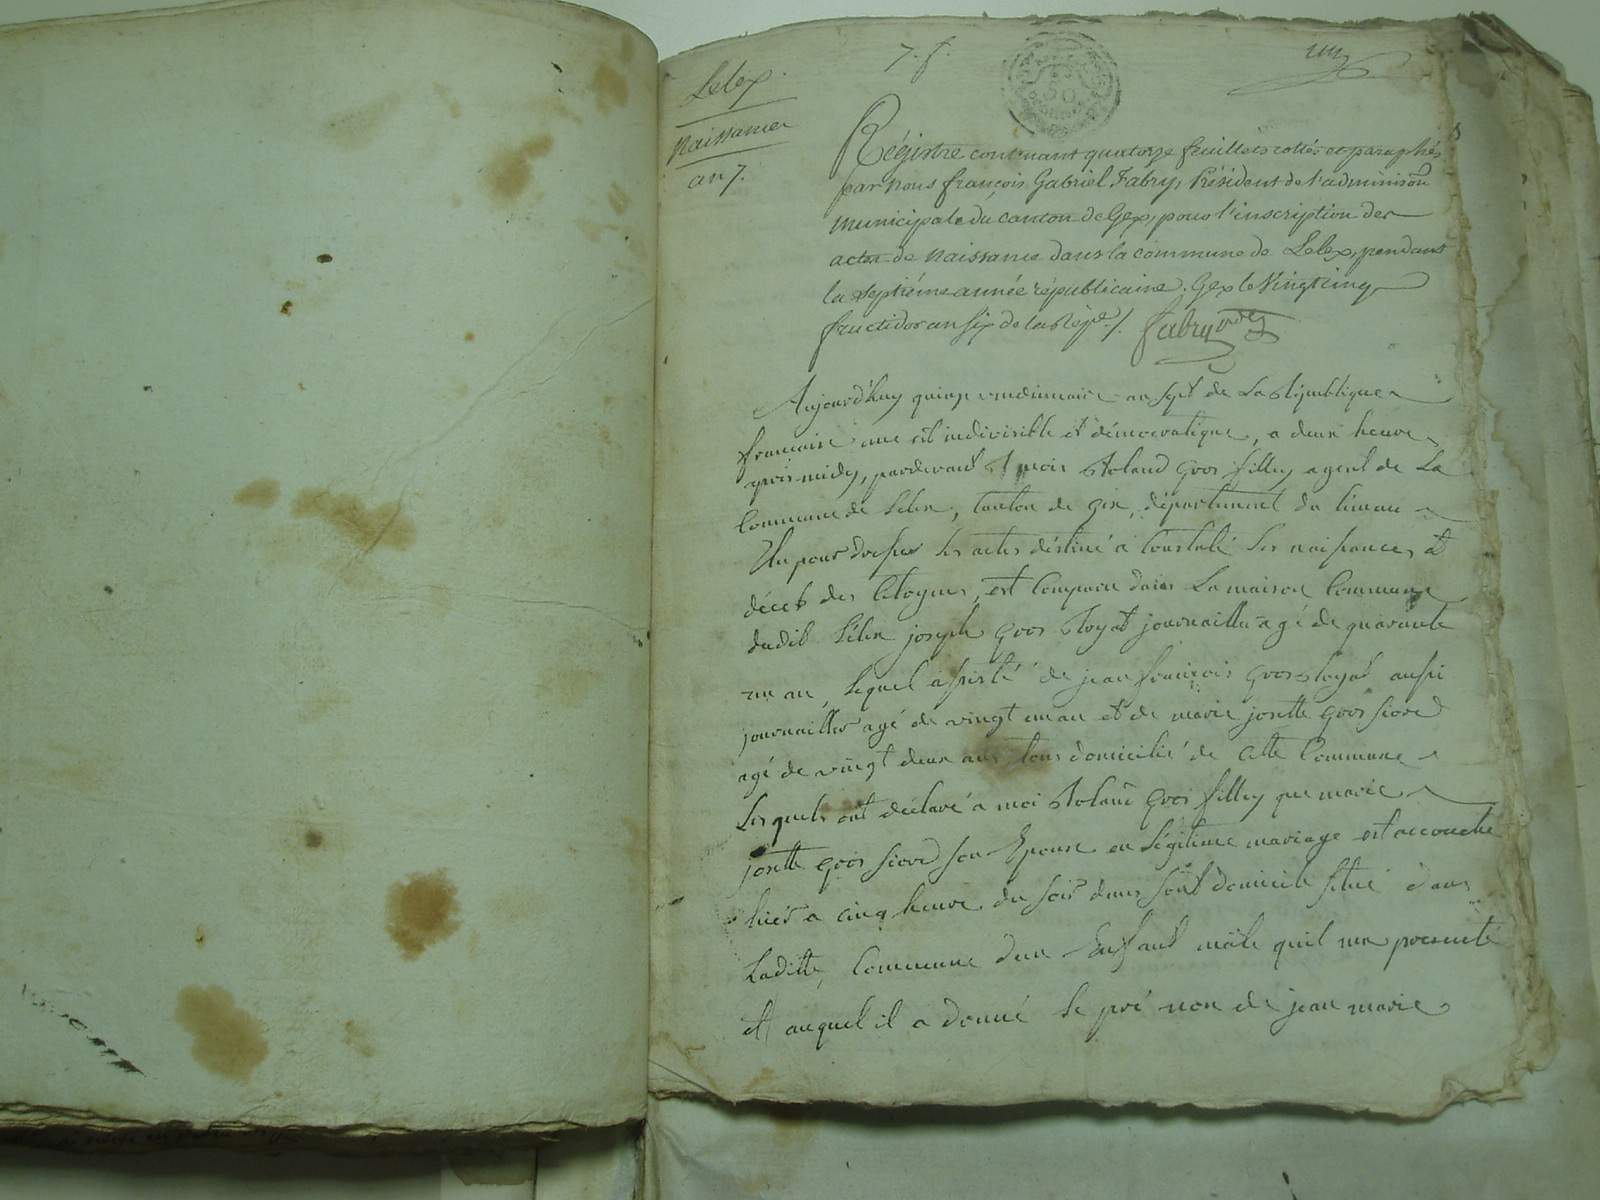 Lelex.
Naissances
an 7.
7. f.
un
50
Régistre contenant quatorze feuillets cottés et paraphés
par nous françois Gabriel Fabry, Président de l'adminison
Municipale du canton de Gex, pour l'inscription des
actes de Naissance dans la commune de Lelex, pendant
la septiéme année républicaine. Gex le Vingt cinq
fructidor an six de la Répe /. Fabry
Aujourd'huy quinze vendimiaire an sept de La République
francaise une et indivisible et démocratique, a deux heure
aprés midy, pardevant moi Roland Gros fillez agent de La
Commune de Lélex, Canton de Gex, département du Léman
Elu pour dresser Les actes déstiné a Constaté Les naissances et
décés des Citoyens, est Comparu dans La maison Commune
dudit Lélex joseph Gros Royat journaillier agé de quarante
un an, Lequel assisté de jean françois Gros Royat aussi
journaillier agé de vingt un an et de marie josette Gros fiord
agé de vingt deux ans tous domicilié de Cette Commune
Lesquels ont déclaré a moi Roland Gros fillez que marie
josette Gros fiord son Epouse en Légitime mariage est accouché
hiér a cinq heure du soir dans son domicile situé dans
Laditte Commune d'un Enfant mâle quil ma presenté
et auquel il a donné Le pré nom de jean marie